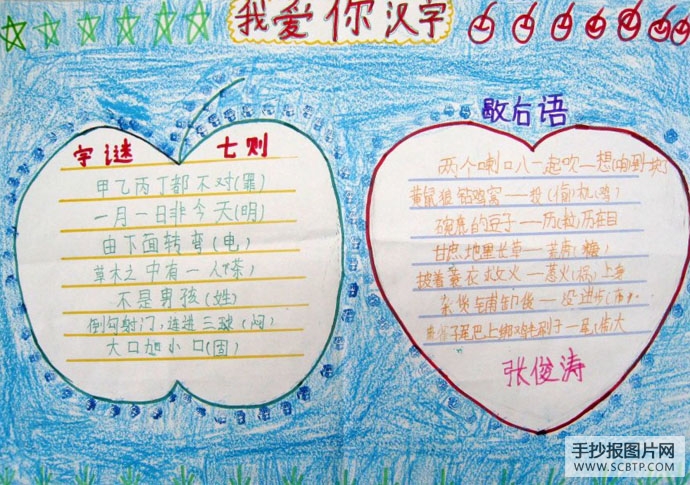 我爱你汉字
字谜 七则
甲乙丙丁都不对(罪)
一月一日非今天(明)
由下面转弯(电)
草木之中有一人(茶)
不是男孩(姓)
倒勾射门,连进三球(闷)
大口加小口(固)
歇后语
两个喇叭一起吹—想(响)到一块了
黄鼠狼钻鸡窝——投(偷)机(鸡)
碗底的豆子——历(粒)历在目
甘庶地里长草——荒唐(糖)
披着蓑衣救火——惹火(祸)上身
张俊涛
手抄报图片网
WWW.SCBTP.COM